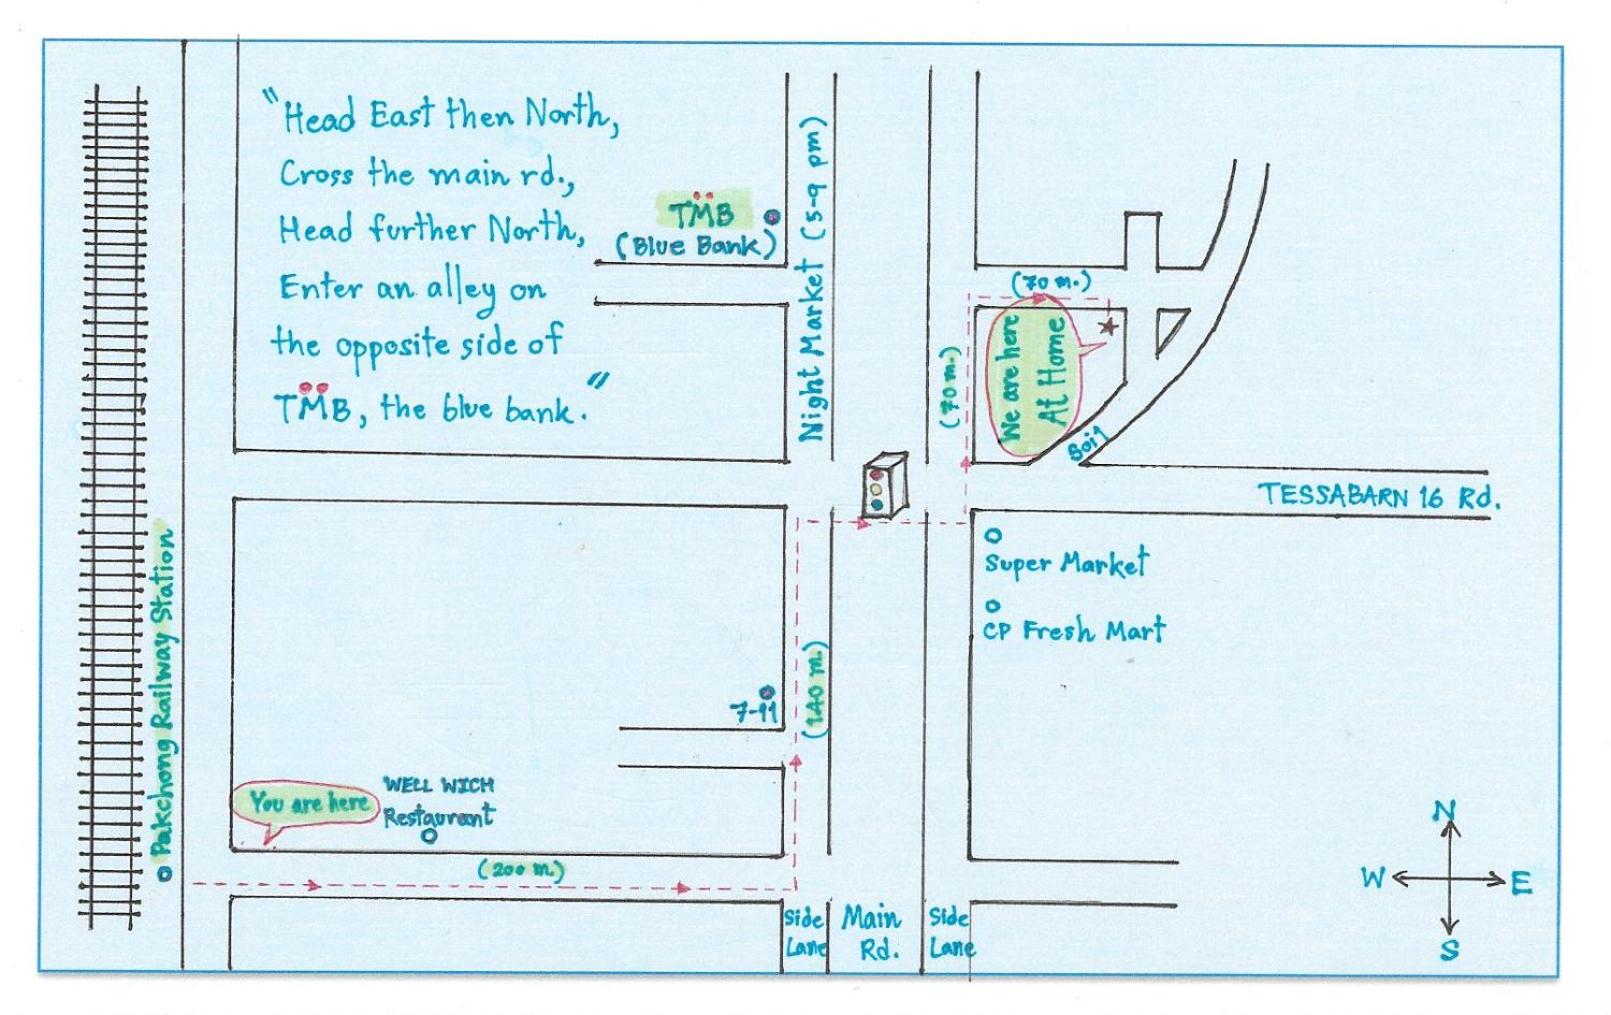 "Head East then North,
Cross the main rd.,
Head further North,
Enter an alley on
the opposite side of
TMB, the blue bank."
TMB
(Blue Bank)
Night Market (5-9 pm)
(70 m.)
(70 m.)
We are here
At Home
Soi 1
TESSABARN 16 Rd.
Super Market
CP Fresh Mart
Pakchong Railway Station
7-11
(140 m.)
You are here
WELL WICH
Restaurant
(200 m.)
Side
Lane
Main
Rd.
Side
Lane
N
W
E
S